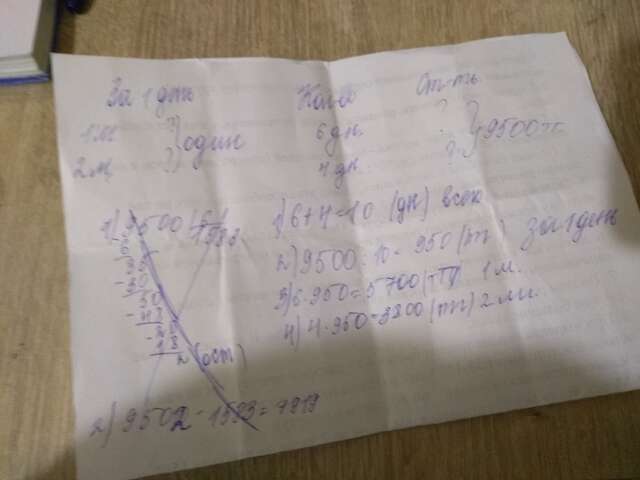 За 1 день Кол-во Ст-ть
1 м ? } один 6 дн. ? } 9500тг
2 м. ? 4 дн. ?
1) 6+4=10 (дн) всего
2) 9500:10= 950 (тг) за 1 день
3) 6·950=5700 (тг) 1 м.
4) 4·950=3800 (тг) 2 м.
1) 9500
6 1583
- 30
50
- 48
- 20
18
2 (ост)
2) 9502 - 1583 = 7919